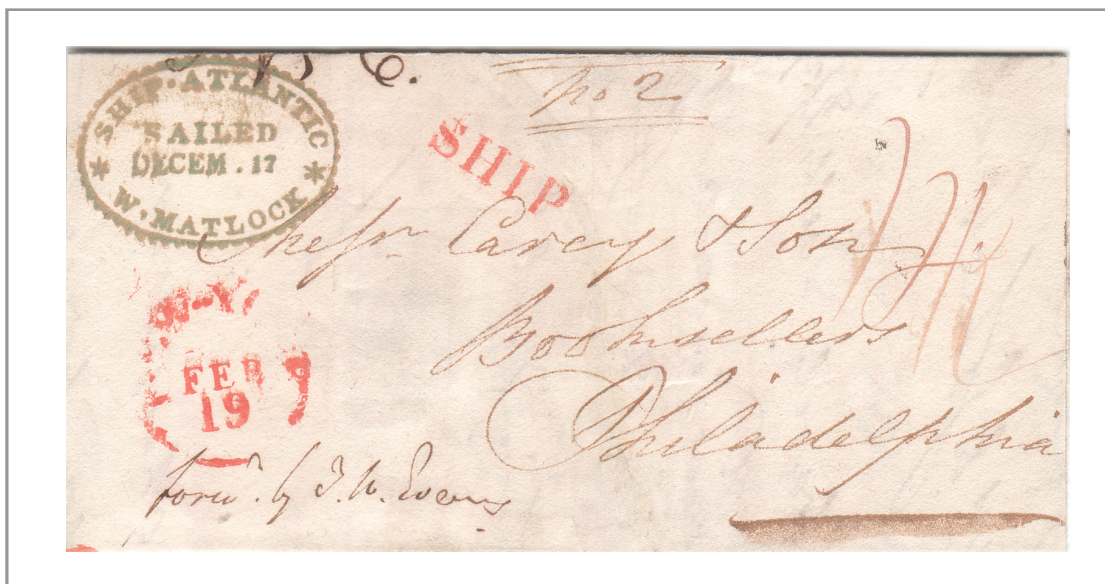 B C.
No 2
SHIP. ATLANTIC
SAILED
DECEM. 17
* W. MATLOCK *
SHIP
Messrs Carey & Son
Booksellers
Philadelphia
FEB
19
forwd. by J. W. Evans